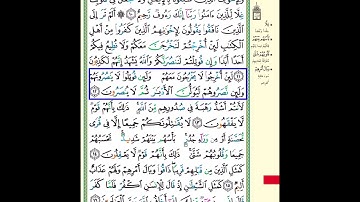 غِلًّا لِّلَّذِينَ ءَامَنُوا۟ رَبَّنَآ إِنَّكَ رَءُوفٌ رَّحِيمٌ ۝١٠ ۞ أَلَمْ تَرَ إِلَى
ٱلَّذِينَ نَافَقُوا۟ يَقُولُونَ لِإِخْوَٰنِهِمُ ٱلَّذِينَ كَفَرُوا۟ مِنْ أَهْلِ
ٱلْكِتَٰبِ لَئِنْ أُخْرِجْتُمْ لَنَخْرُجَنَّ مَعَكُمْ وَلَا نُطِيعُ فِيكُمْ
أَحَدًا أَبَدًا وَإِن قُوتِلْتُمْ لَنَنصُرَنَّكُمْ وَٱللَّهُ يَشْهَدُ إِنَّهُمْ لَكَٰذِبُونَ
۝١١ لَئِنْ أُخْرِجُوا۟ لَا يَخْرُجُونَ مَعَهُمْ وَلَئِن قُوتِلُوا۟ لَا يَنصُرُونَهُمْ
وَلَئِن نَّصَرُوهُمْ لَيُوَلُّنَّ ٱلْأَدْبَٰرَ ثُمَّ لَا يُنصَرُونَ ۝١٢
لَأَنتُمْ أَشَدُّ رَهْبَةً فِى صُدُورِهِم مِّنَ ٱللَّهِ ذَٰلِكَ بِأَنَّهُمْ قَوْمٌ
لَّا يَفْقَهُونَ ۝١٣ لَا يُقَٰتِلُونَكُمْ جَمِيعًا إِلَّا فِى قُرًى
مُّحَصَّنَةٍ أَوْ مِن وَرَآءِ جُدُرٍۭ بَأْسُهُم بَيْنَهُمْ شَدِيدٌ تَحْسَبُهُمْ
جَمِيعًا وَقُلُوبُهُمْ شَتَّىٰ ذَٰلِكَ بِأَنَّهُمْ قَوْمٌ لَّا يَعْقِلُونَ ۝١٤
كَمَثَلِ ٱلَّذِينَ مِن قَبْلِهِمْ قَرِيبًا ذَاقُوا۟ وَبَالَ أَمْرِهِمْ وَلَهُمْ عَذَابٌ
أَلِيمٌ ۝١٥ كَمَثَلِ ٱلشَّيْطَٰنِ إِذْ قَالَ لِلْإِنسَٰنِ ٱكْفُرْ فَلَمَّا كَفَرَ